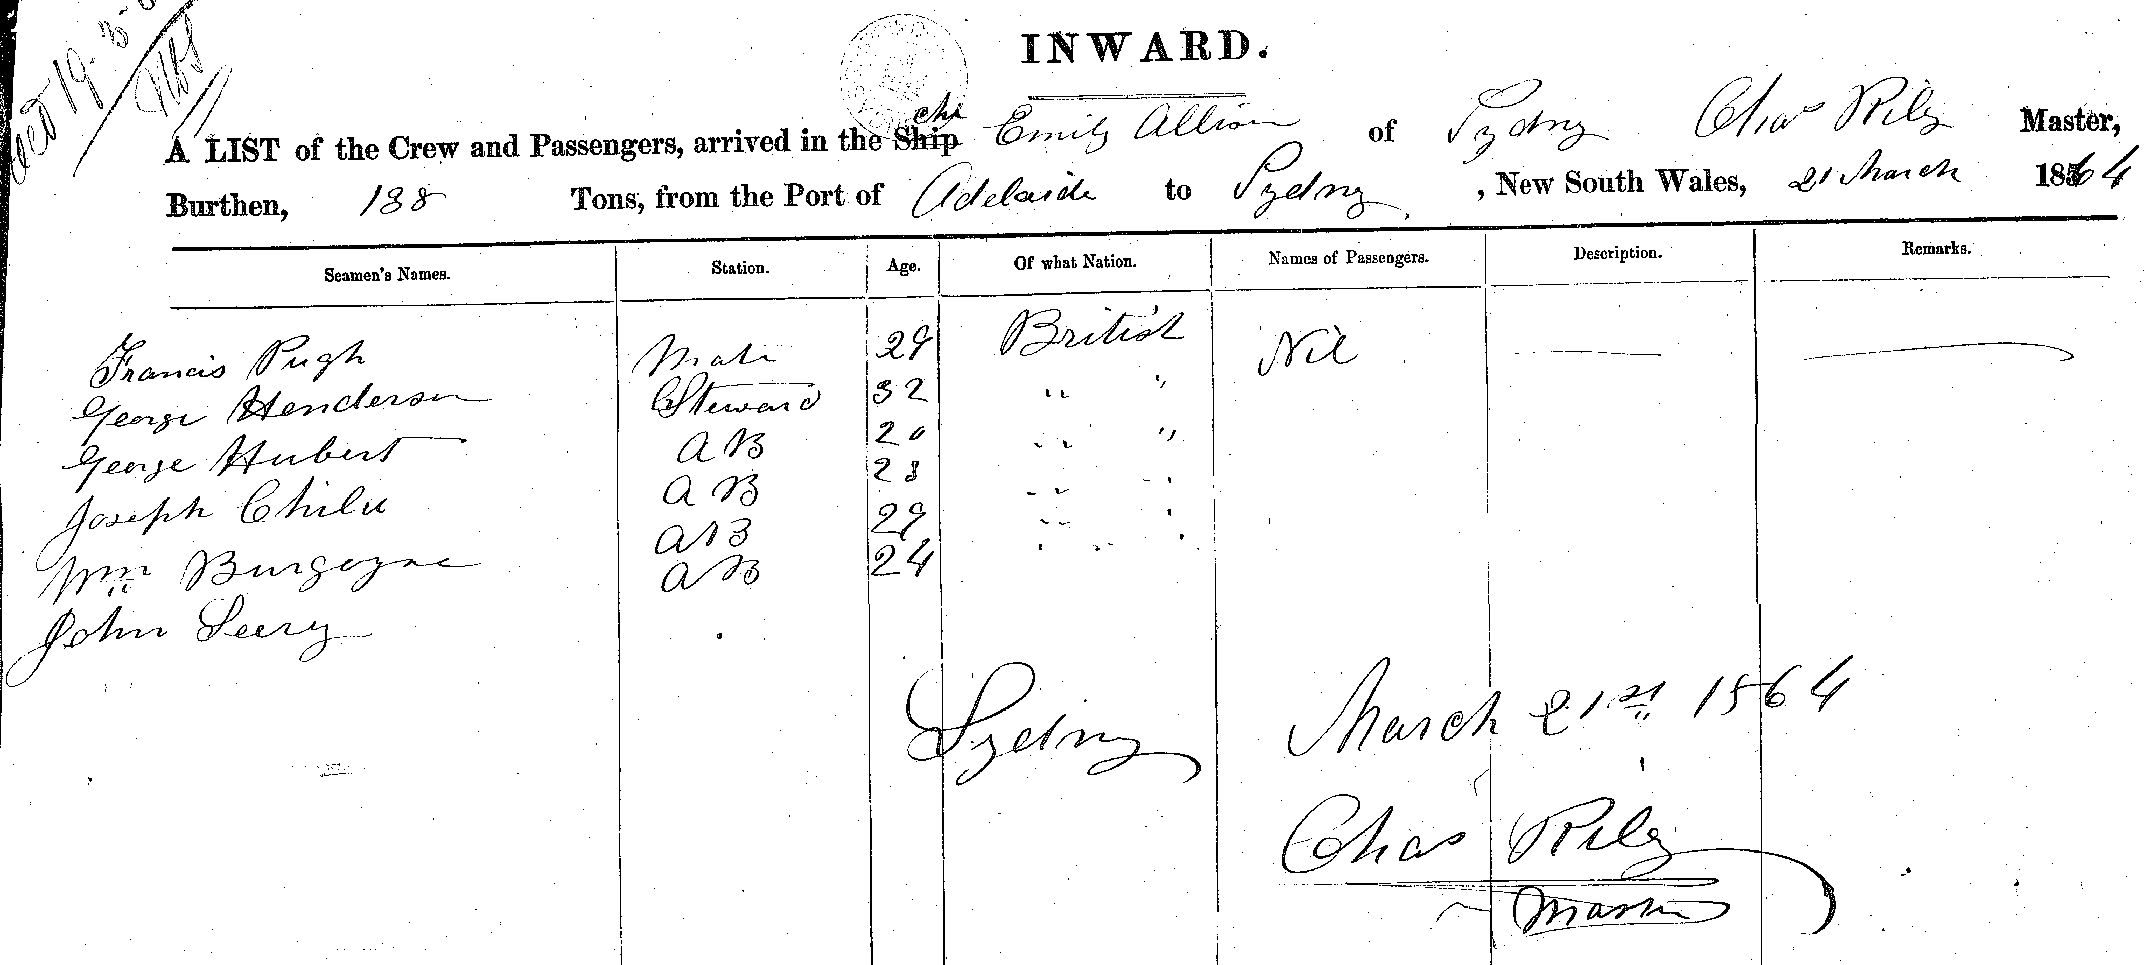 INWARD.
A LIST of the Crew and Passengers, arrived in the Ship Emily Allison of Sydney Chas Riley Master,
Burthen, 138 Tons, from the Port of Adelaide to Sydney, New South Wales, 21 March 1864
Seamen's Names. Station. Age. Of what Nation. Names of Passengers. Description. Remarks.
Francis Pugh Mate 29 British Nil
George Henderson Steward 32 " "
George Hubert AB 20 " "
Joseph AB 28 " "
Wm Burgoyne AB 29 " "
John Leery AB 24 " "
Sydney March 21st 1864
Chas Riley
Master